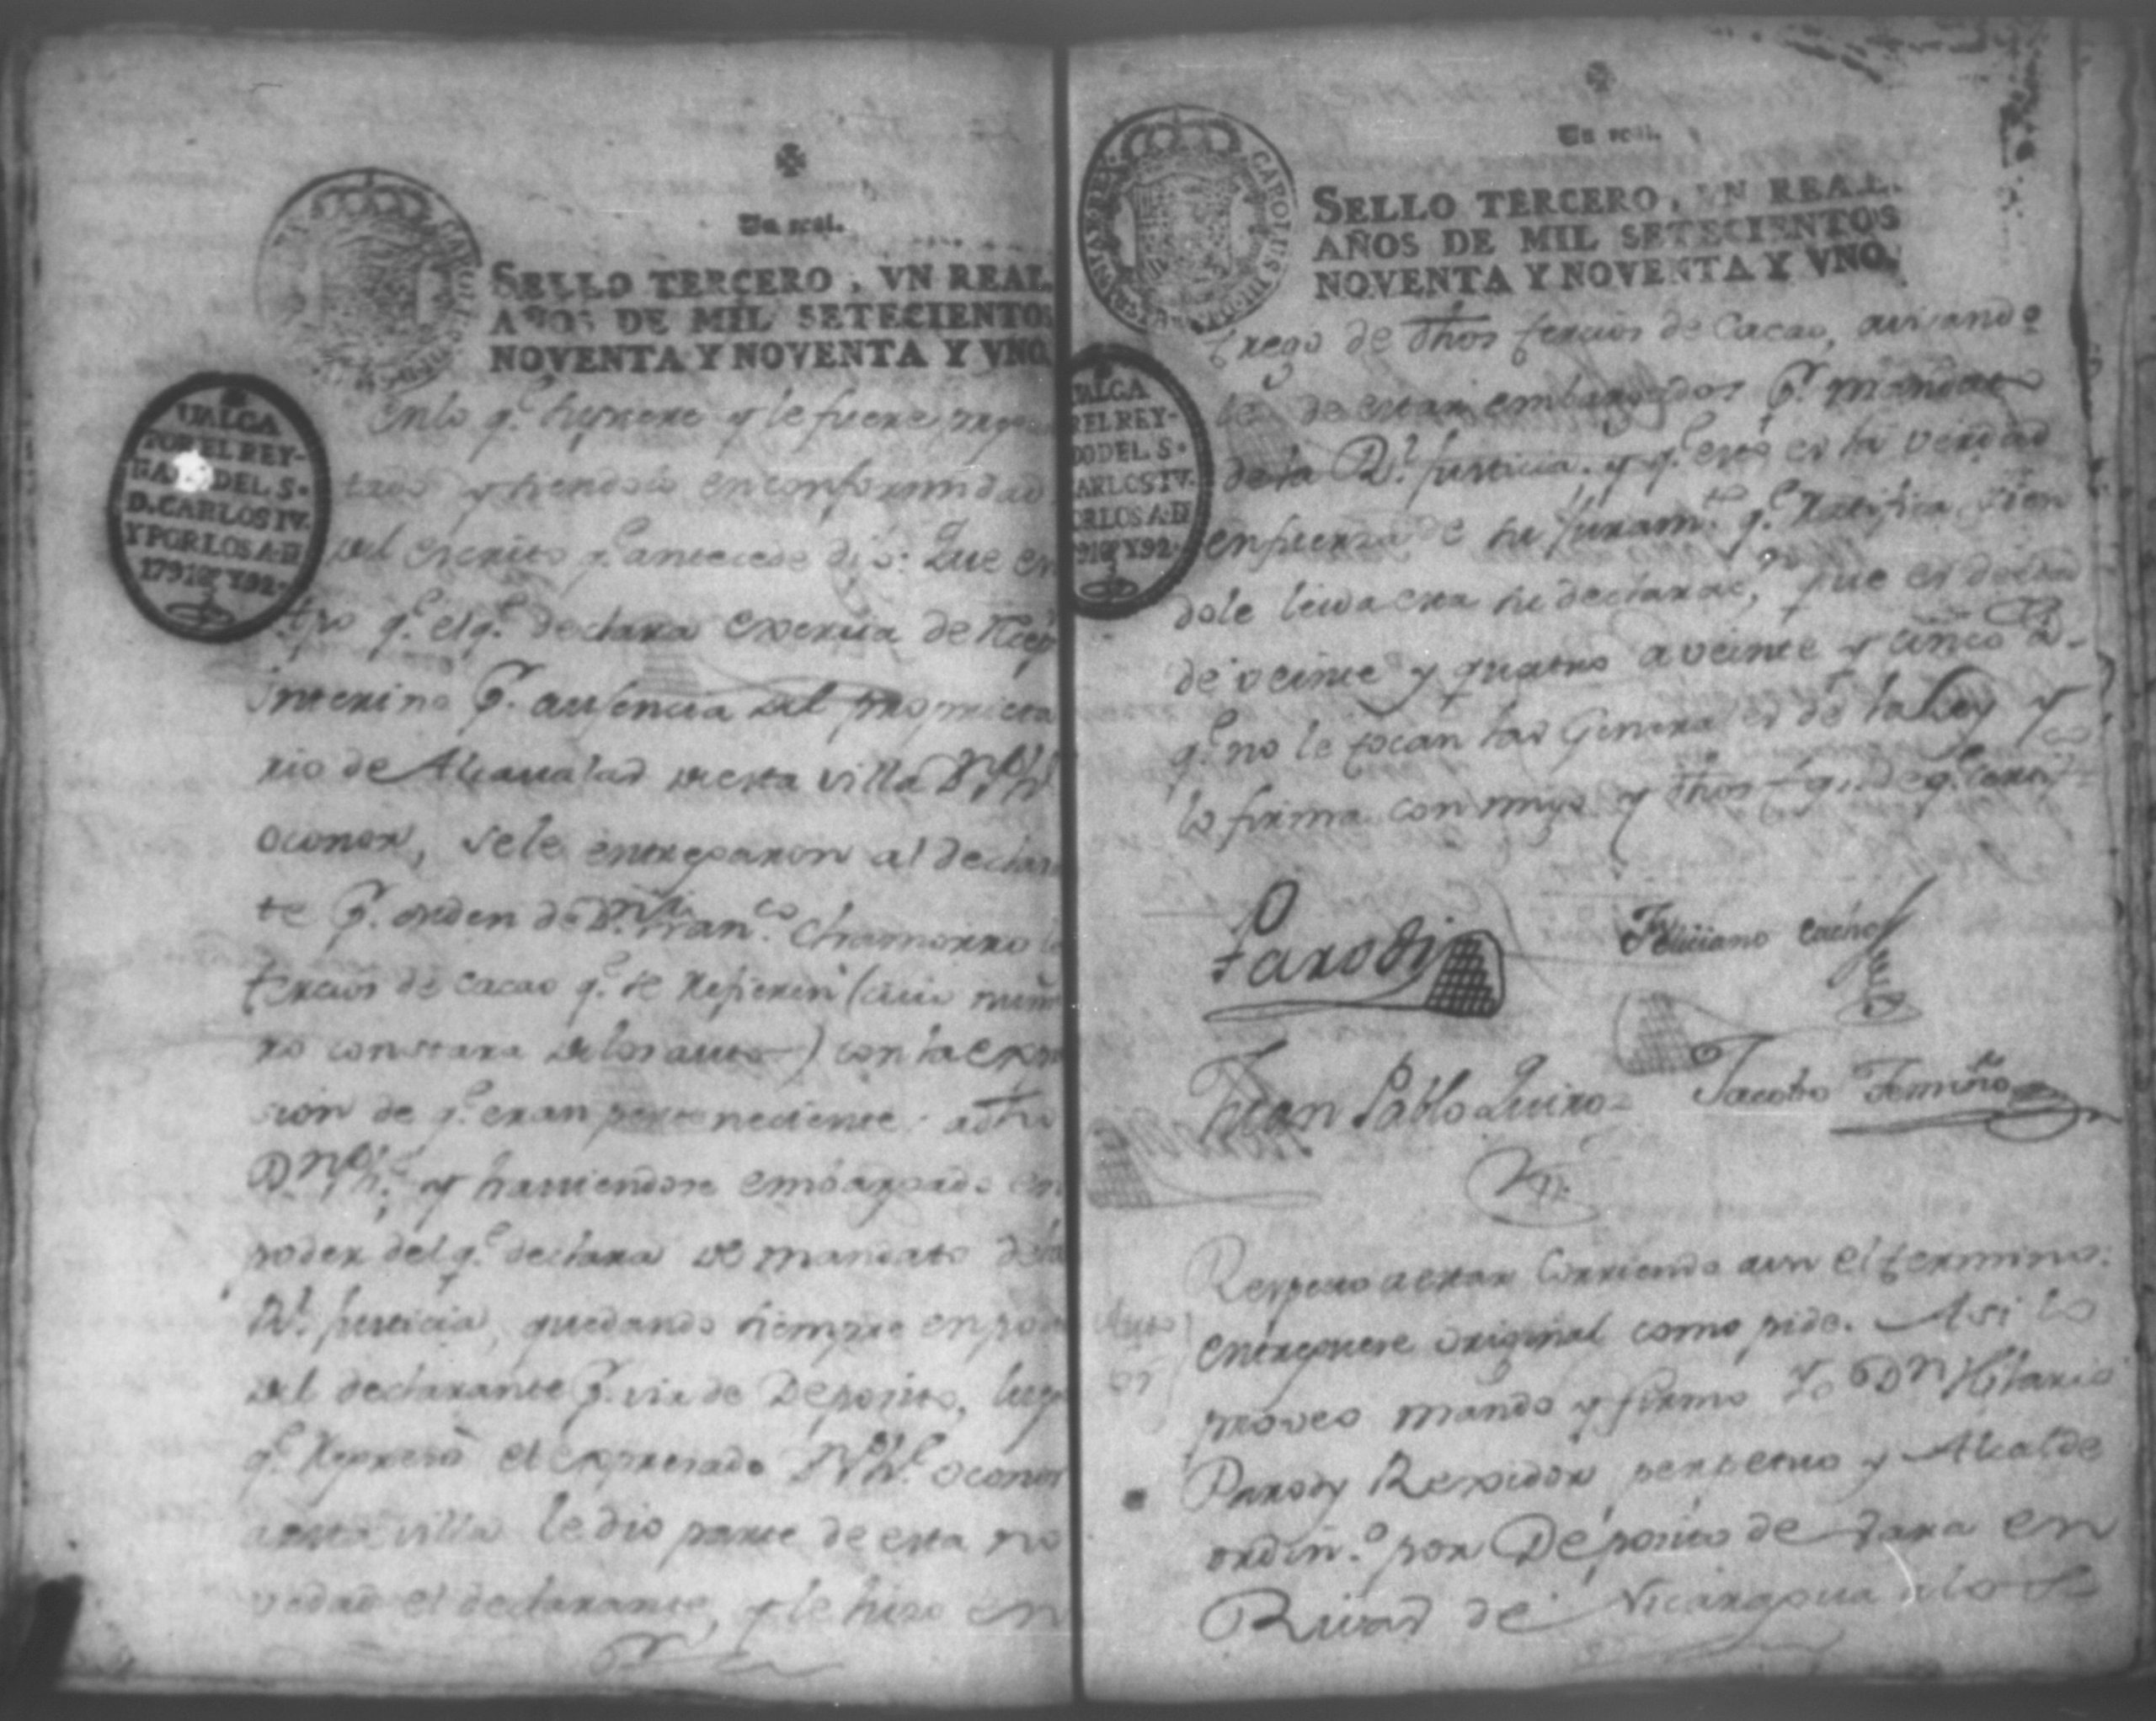 Un real.
SELLO TERCERO, VN REAL.
AÑOS DE MIL SETECIENTOS
NOVENTA Y NOVENTA Y VNO.
VALGA
POR EL REY-
DEL S.
D. CARLOS IV.
Y POR LOS A. D
1791 Y 92.
en lo q.e supiere y le fuere
y siendolo en conformidad
del escrito q.e antecede dijo: Que en
tpo q.e el q.e declara exercia de Recep
Interino p.r ausencia del proprieta
rio de Alcaualas de esta villa
oconor, se le entregaron al declaran
te p.r orden de Fran.co Chamorro
tercios de cacao q.e se refieren (cuio nume
ro constara de los autos) con la expre
sion de q.e eran perteneciente a dho
y haviendose embargado en
poder del q.e declara de mandato de la
R.l Justicia, quedando siempre en pode
del declarante p.r via de Deposito, luego
q.e regresó el expresado oconor
a esta villa le dio parte de esta no
vedad el declarante, y le hizo en
Un real.
SELLO TERCERO, VN REAL.
AÑOS DE MIL SETECIENTOS
NOVENTA Y NOVENTA Y VNO.
CAROLUS
VALGA
R EL REY-
DO DEL S.
CARLOS IV.
OR LOS A. D
91 Y 92.
trego de dhos tercios de Cacao, avisando
le de estar embargados p.r mandato
de la R.l Justicia. y q.e esto es la verdad
en fuerza de su Juram.to q.e Ratifica, sien
dole leida esta su declarac.on, que es de edad
de veinte y quatro a veinte y cinco a.s
q.e no le tocan las Generales de la Ley y
lo firma conmigo y dhos
Parodi
Feliciano Cacho
Juan Pablo Quiros
Jacobo Temiño
Respecto a estar corriendo aun el termino.
entreguese original como pide. Asi lo
proveo mando y firmo Yo D.n Hilario
Parody Rexidor perpetuo y Alcalde
ordin.o por Deposito de Vara en
Rivas de Nicaragua a los
Auto